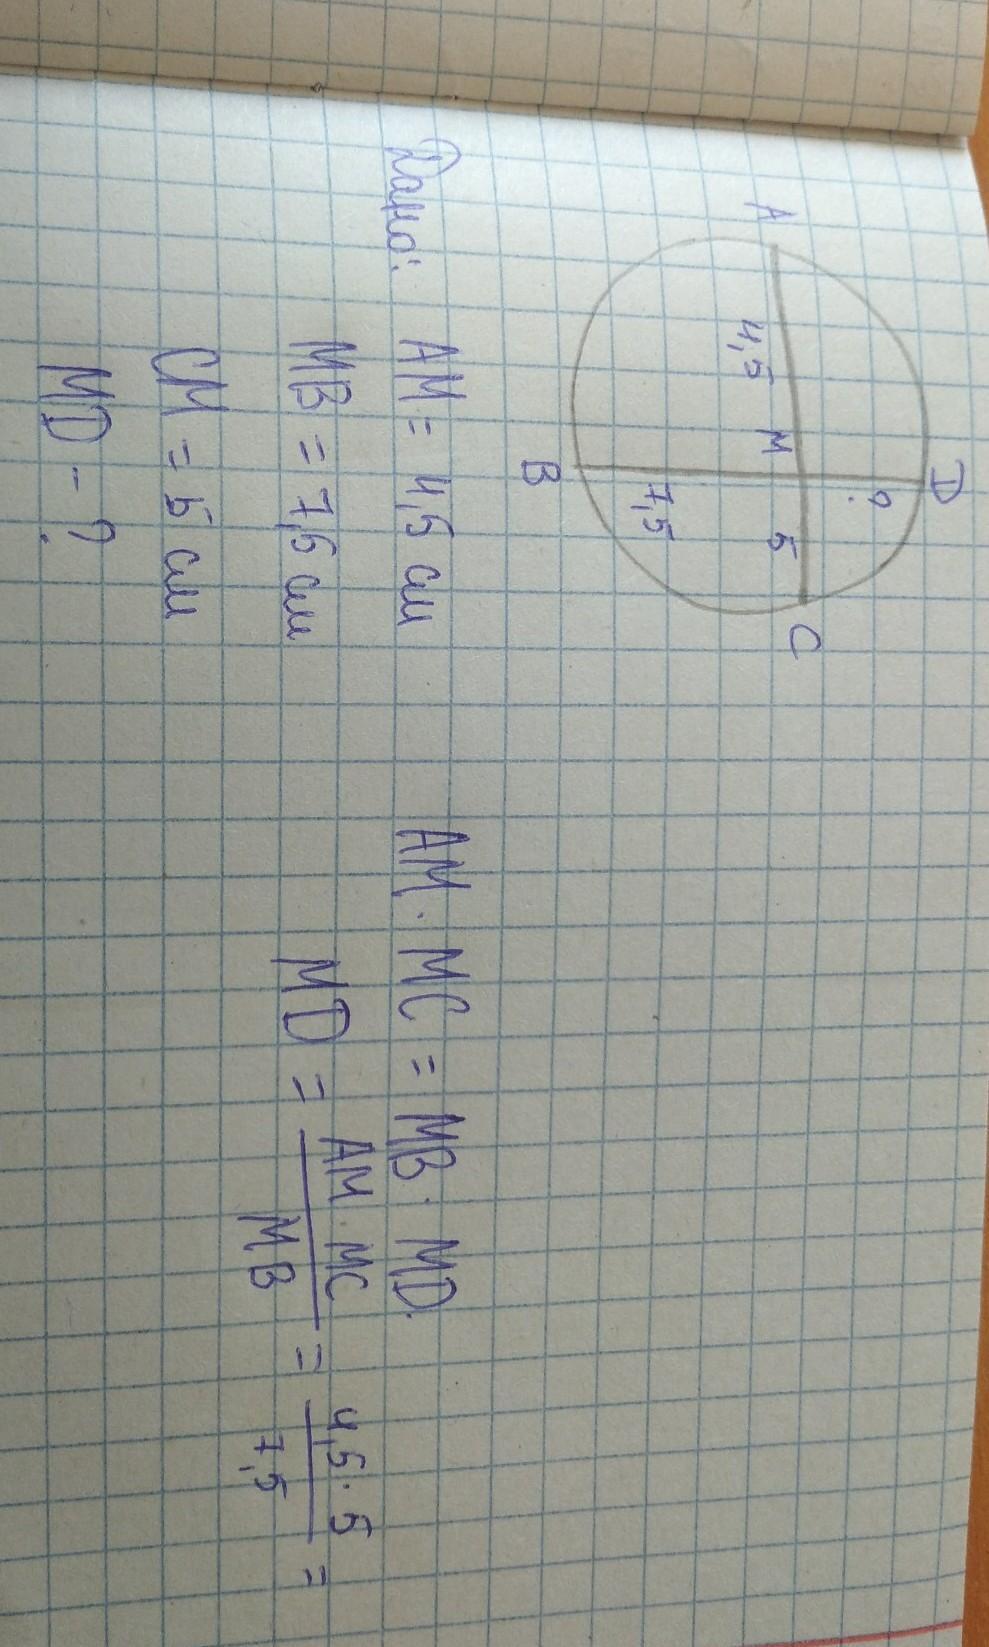 D
?
A
4,5
M
5
C
7,5
B
Дано: AM = 4,5 см
MB = 7,5 см
CM = 5 см
MD - ?
AM · MC = MB · MD.
MD = AM · MC / MB = 4,5 · 5 / 7,5 =